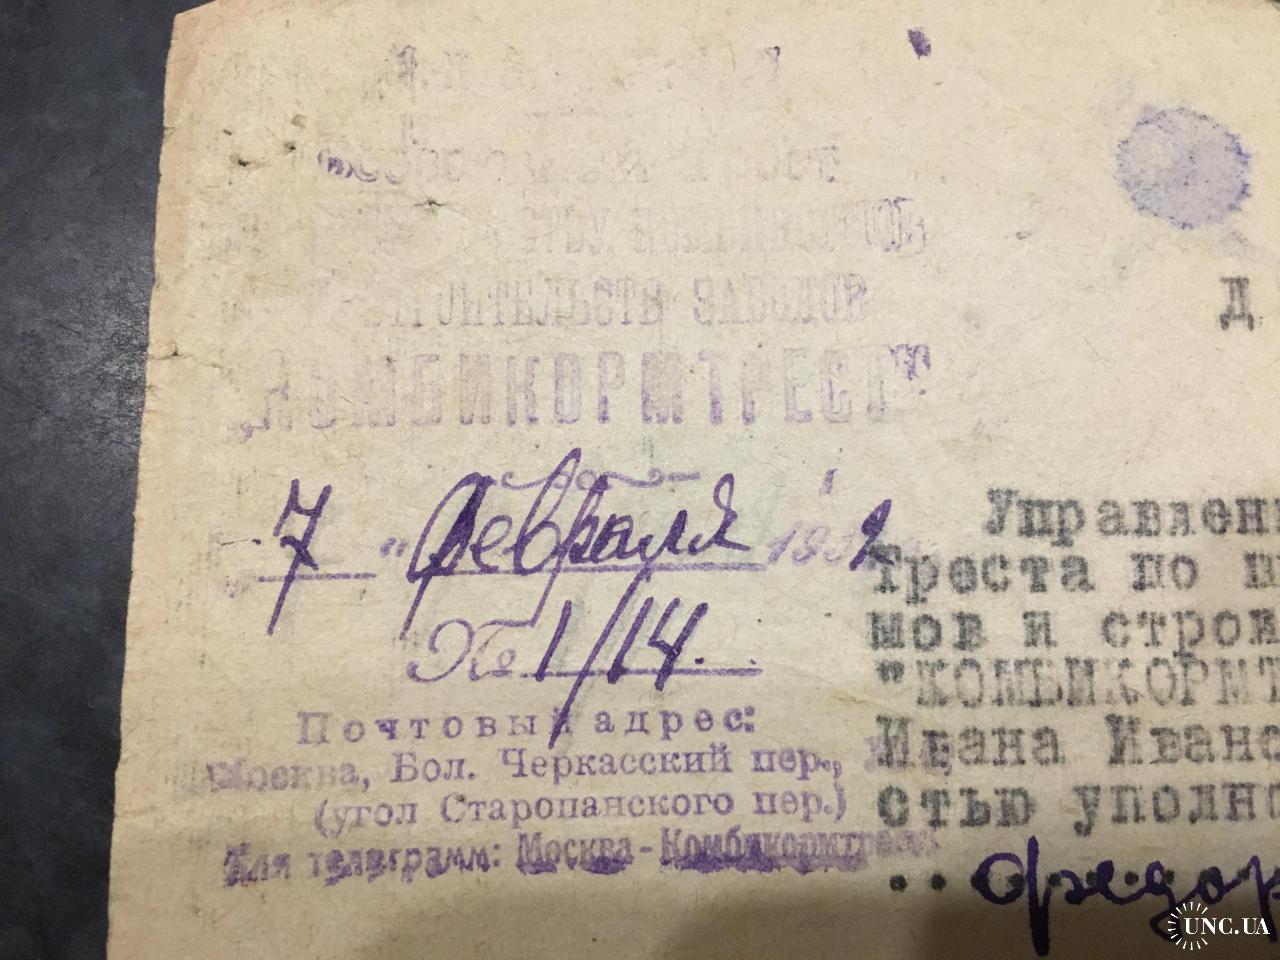 СТРОИТЕЛЬСТВ ЗАВОДОВ
„КОМБИКОРМТРЕСТ"
7 " Февраля 1932
№ 1/14.
Почтовый адрес:
Москва, Бол. Черкасский пер.,
(угол Старопанского пер.)
Для телеграмм: Москва-Комбикормтрест
Д
Управлен
треста по
мов и строи
"КОМБИКОРМТ
Ивана Ивано
стью уполно
Федор
UNC.UA